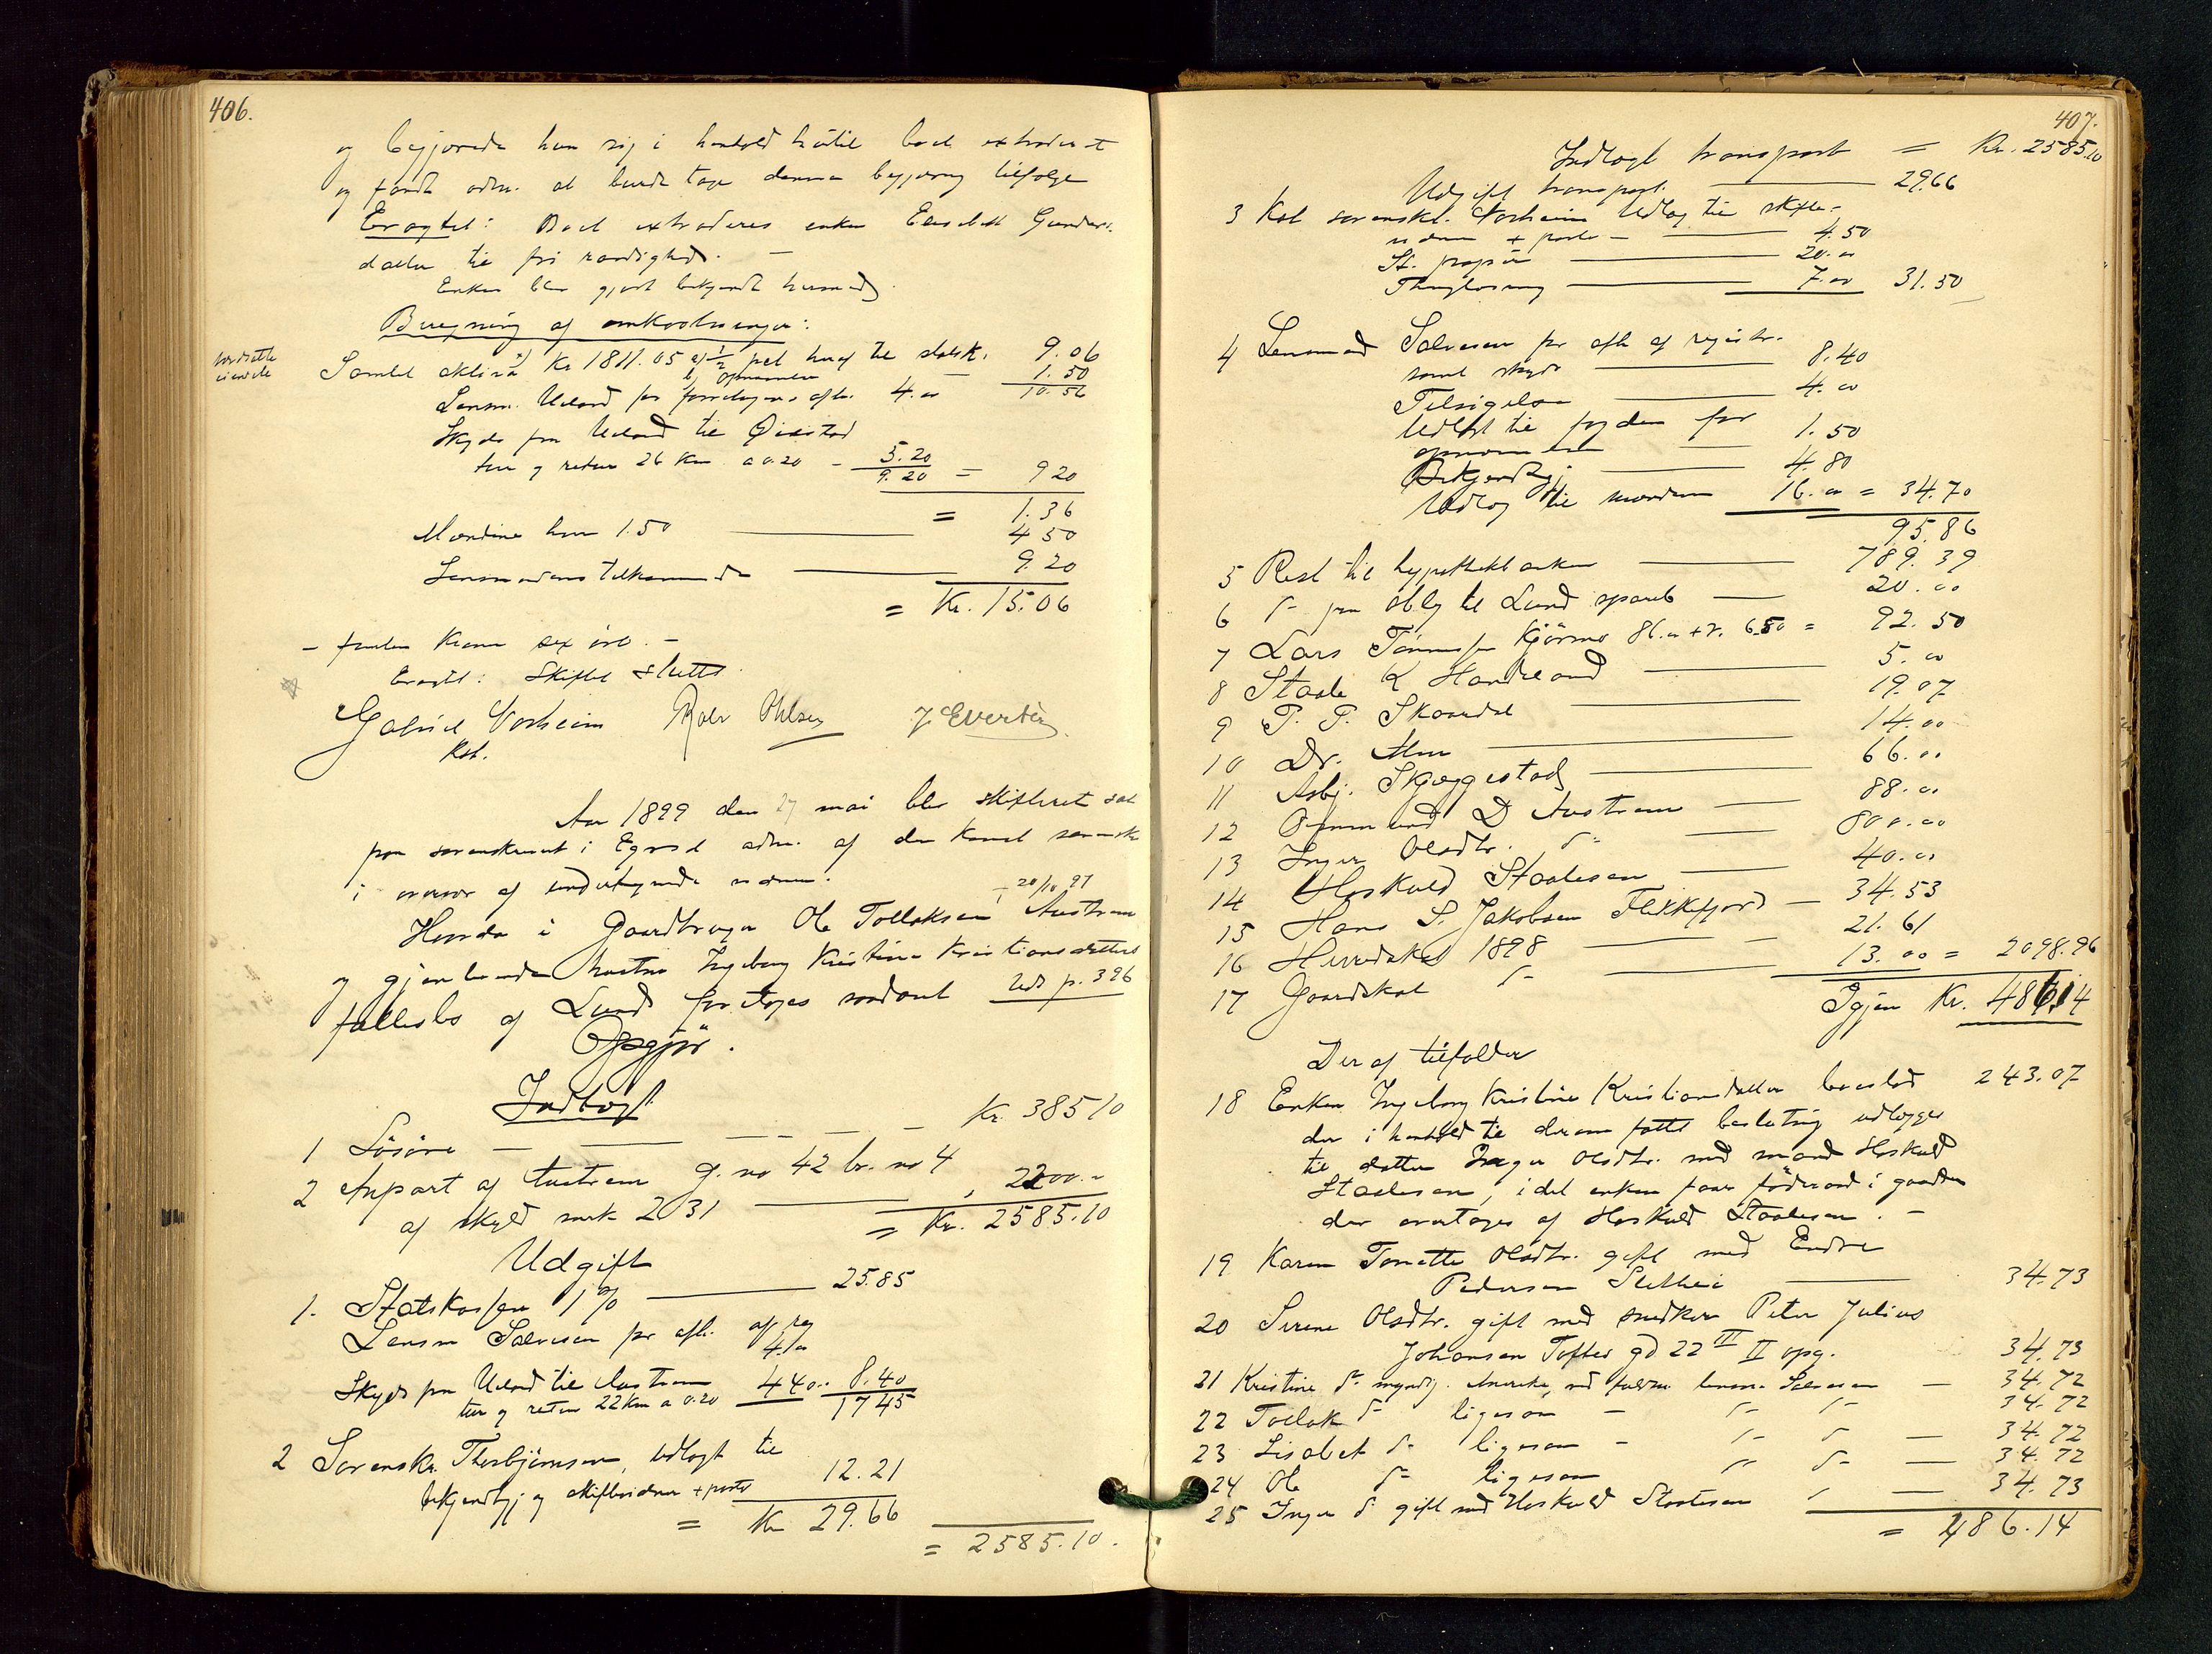 406.
og begjærede hun sig i henhold hertil boet extraderet
og fandt adm. at burde tage denne begjæring tilfølge
Eragtet: Boet extraderes enken Elisabet Gunders-
datter til fri raadighed. —
Enken blev gjort bekjendt hermed.
Beregning af omkostninger:
Samlet aktiva Kr 1811.05 a) ½ pct heraf til statsk. 9.06
b, opnævnelse 1.50
10.56
Lensm. Ueland for forretningens afh. 4.00
Skyds fra Ueland til Øiestad
tur og retur 26 Km a 0.20 - 5.20
9.20 = 9 20
= 1.36
Mændene hver 1.50 — 4 50
Lensmandens tilkommende — 9.20
= Kr. 15.06
– femten Kroner sex øre. –
Eragtet: Skiftet sluttet
Gabriel Vorheim
Kst.
Aar 1899 den 27 mai blev skifteret sat
paa sorenskriveri i Egersd adm. af den Konst sorenskr
i overvær af undertegnede vidner.
Hvorda i Gaardbruger Ole Tollaksen Austrem
† 20/10 97
og gjenlevende hustru Ingeborg Kristine Kristiansdatters
fællesbo af Lund foretoges saadant Uds p. 396
Opgjør.
Indtægt
1 Løsøre — — — — — Kr. 385 10
2 Anpart af Austrem g. no 42 br. no 4
af skyld mark 2 31 — 2200.-
= Kr. 2585.10
Udgift
1. Statskassen 1 % — 25.85
Lensm Salvesen for afh. af reg
4.00
Skyds fra Ueland til Austrem
tur og retur 22 Km a 0.20 440.. 8.40
17 45
2 Sorenskr. Thorbjørnsen, Udlagt til
bekjendtgj og skiftevidner + porto 12.21
= Kr 29.66
= 2585.10.
407.
Indtægt transport = Kr. 2585.10
Udgift transport. — 29.66
3 Kst sorenskr. Vorheim Udlæg til skifte-
vidner + porto — 4.50
St. papir — 20.00
Thinglæsning — 7.00 31.50
4 Lensmand Salvesen for afh af registr.
samt skyds — 8.40
Tilsigelse — 4.00
Udlagt til fogden for
opnævnelse — 1.50
Bekjendtgj. — 4.80
Udlæg til mændene 16.00 = 34.70
95.86
5 Rest til hypothekbanken — 789.39
6 do paa oblg til Lund spareb — 20.00
7 Lars Tønnessen Kjørmo 86.00 + r. 6.50 = 92.50
8 Staale K Handeland — 5.00
9 P. P. Skaardal — 19.07
10 Dr. — 14.00
11 Asbj. Skjæggestad — 66.00
12 Ommund D Austrem — 88.00
13 Inger Olsdtr. do — 800.00
14 Hoskuld Staalesen — 40.00
15 Hans S. Jakobsen Flekkefjord — 34.53
16 Herredskat 1898 — 21.61
17 Gaardskat do — 13.00 = 2098.96
Igjen Kr. 486.14
Deraf tilfalder
18 Enken Ingeborg Kristine Kristiansdatter boeslod 243.07
der i henhold til derom fattet beslutning udlægges
til datter Inger Olsdtr. med mand Hoskuld
Staalesen, idet enken faar føderaad i gaarden
der overtages af Hoskuld Staalesen. –
19 Karen Tonette Olsdtr. gift med Endre
Pedersen Slettei — 34.73
20 Serene Olsdtr. gift med snedker Peter Julius
Johansen Toftes gd 22 III II opg. 34.73
21 Kristine do myndig. Amerika, ved fuldm. lensm. Salvesen — 34.72
22 Tollak do ligesaa – do do 34.72
23 Lisabet do ligesaa – do do — 34.72
24 Ole do ligesaa do do — 34.72
25 Inger do gift med Hoskuld Staalesen — 34.73
= 486.14